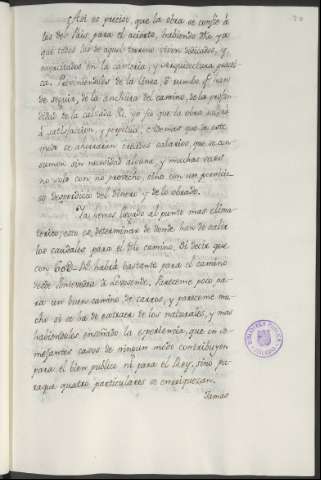 Así es preciso, que la obra se confie á
los del Pais, para el acierto, habiendo dho ya
que todos los de aquel terreno viven dedicados, y
empleados en la cantería, y arquitectura
Previniendoles de la linea, ó rumbo qe han
de seguir, de la anchura del camino, de la profun
didad de la calzada &c, yo fio que la obra salga
á satisfaccion, y perpetua, y demas que de este
modo se ahorrarán crecidos salarios, que se con
sumen sin necesidad alguna, y muchas veces
no solo con no provecho, sino con un pernicio
so desperdicio del dinero y de lo obrado.
Ya hemos llegado al punto mas clima
terico, esto es, determinar de donde han de salir
los caudales para el dho camino. Al decir que
con habia bastante para el camino
desde Pontevedra á Pareceme poco pa
ra un buen camino de carros, y pareceme mu
cho si se ha de extraer de los naturales, y mas
habiendoles enseñado la experiencia, que en se
mejantes casos de ningun modo contribuyen
para el bien publico ni para el Rey, sino pa
raque quatro particulares se enriquezcan.
Jamas